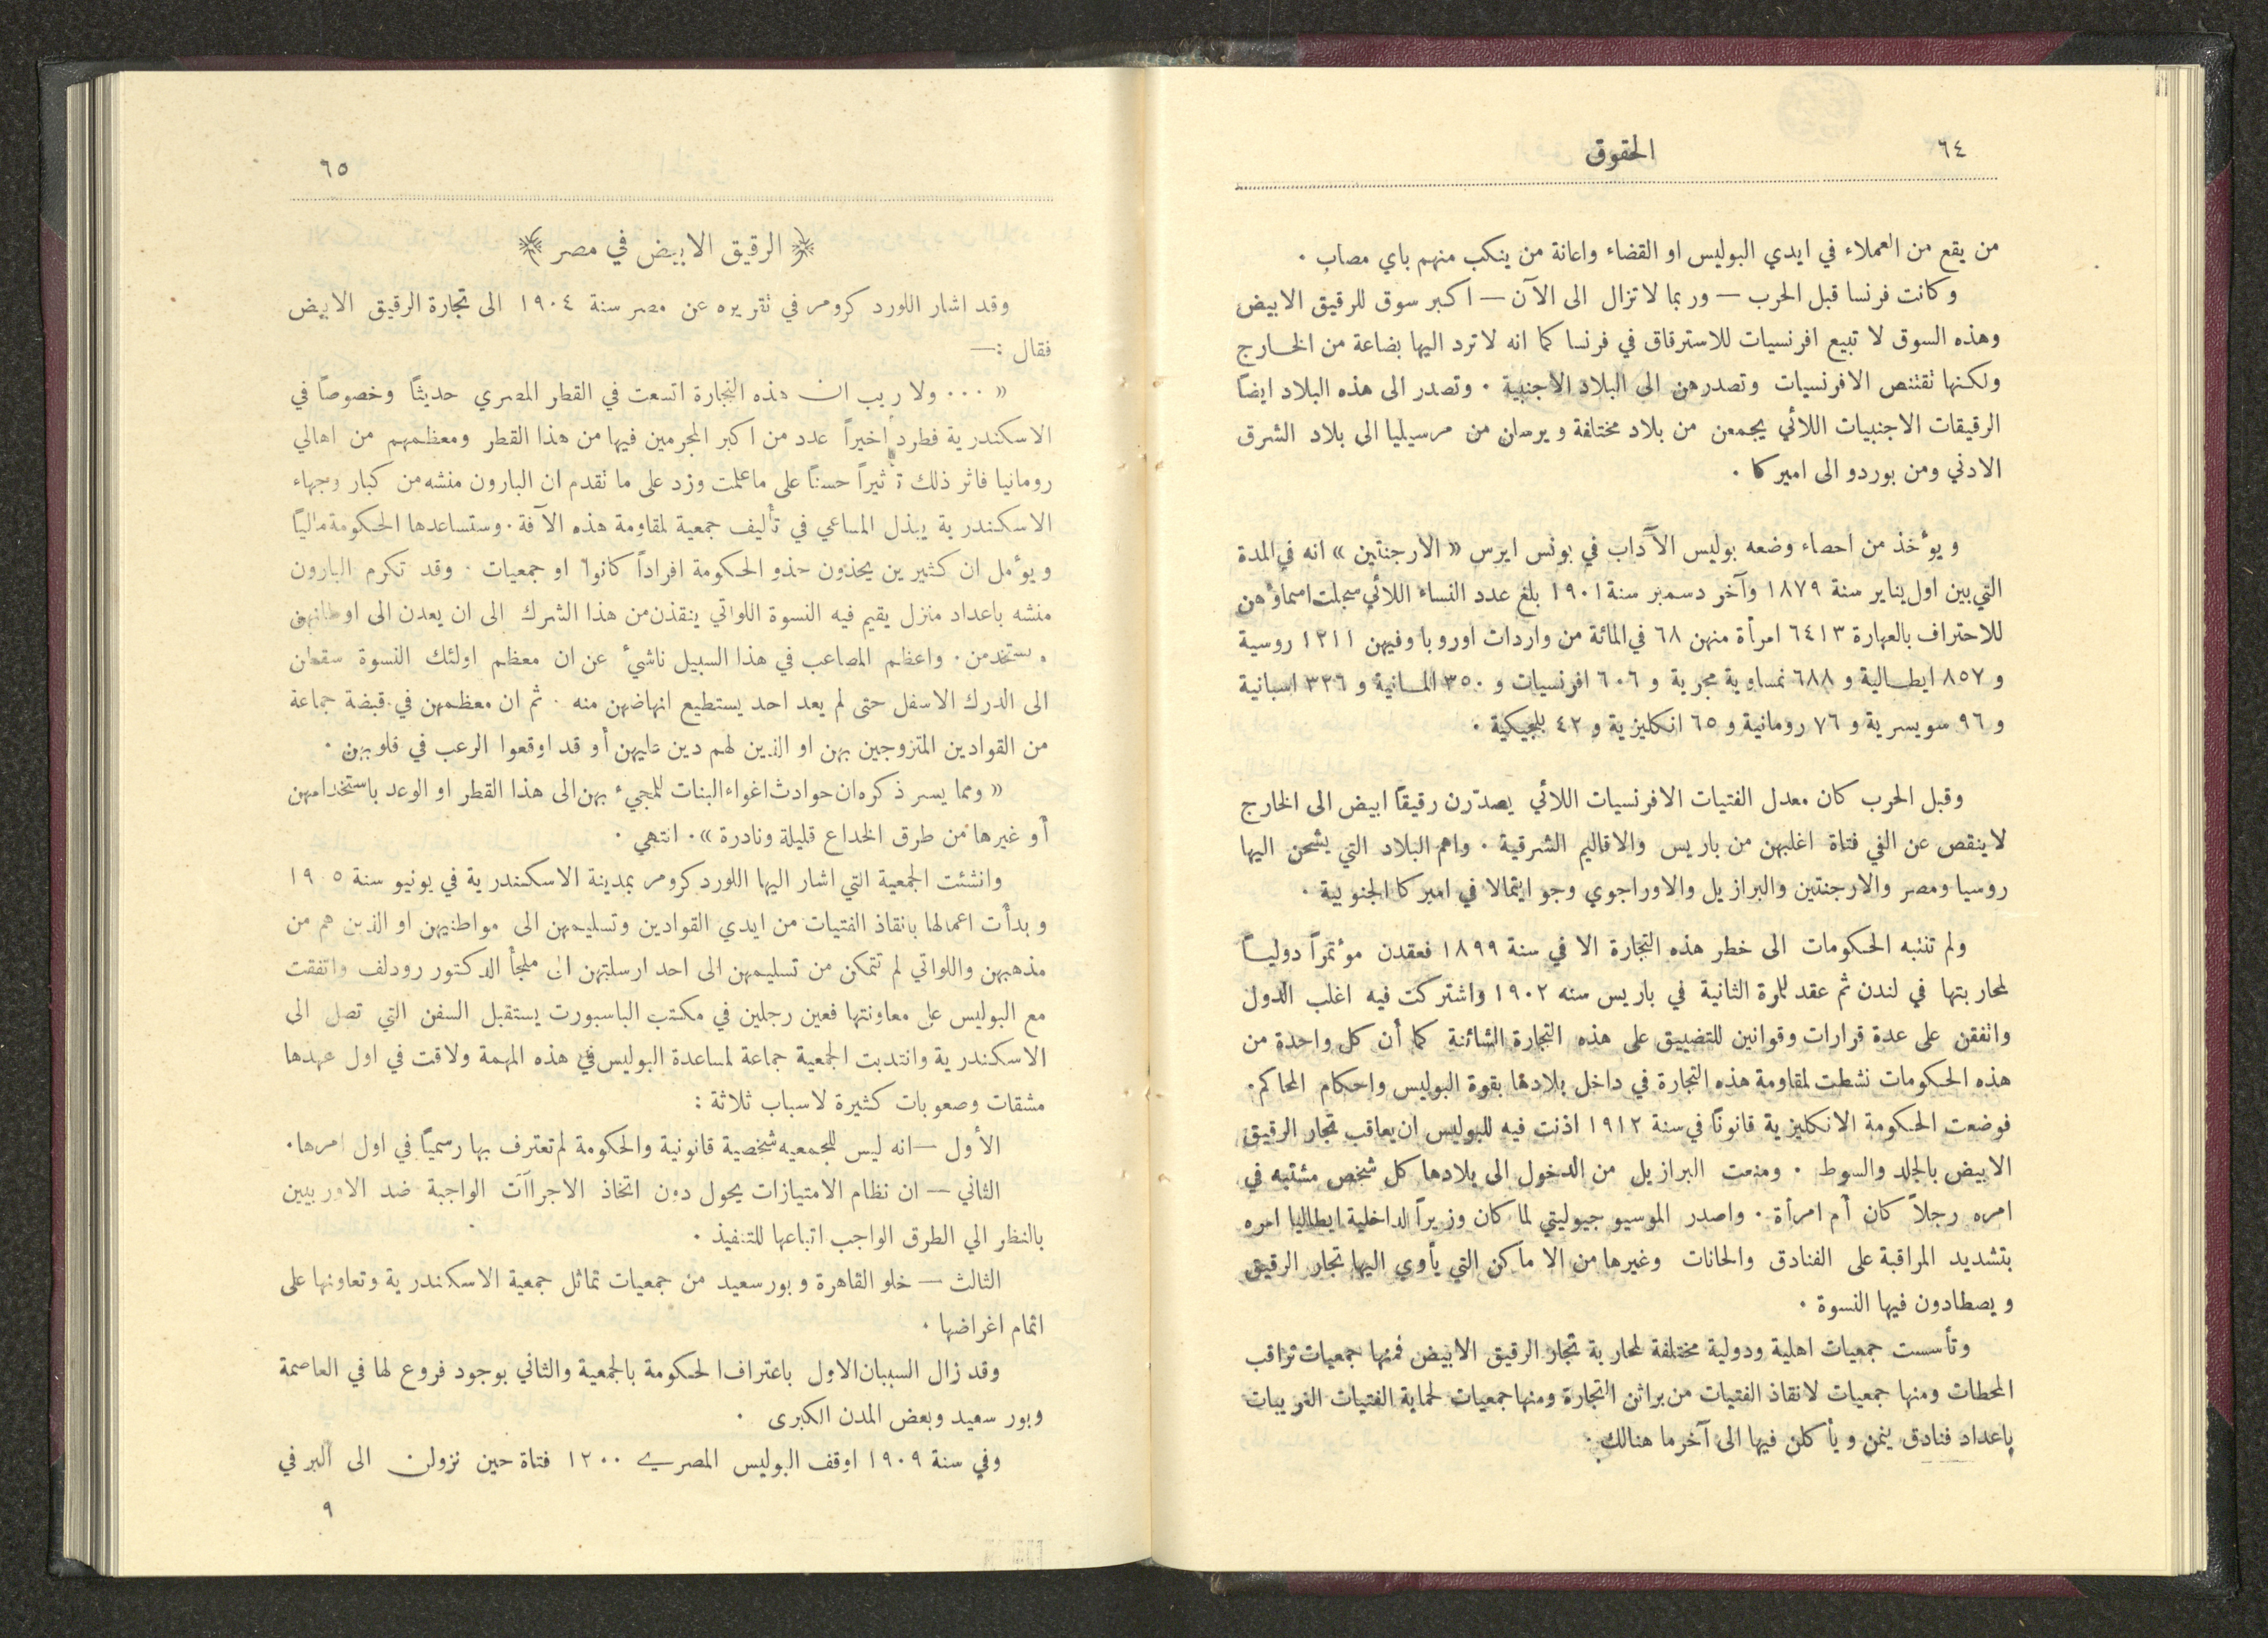 ٦٤
الحقوق
من يقع من العملاء في ايدي البوليس او القضاء واعانة من ينكب منهم باي مصاب .
وكانت فرنسا قبل الحرب — وربما لاتزال الى الآن — اكبر سوق للرقيق الابيض
وهذه السوق لا تبيع افرنسيات للاسترقاق في فرنسا كما انه لاترد اليها بضاعة من الخارج
ولكنها تقتنص الافرنسيات وتصدرهن الى البلاد الاجنبية . وتصدر الى هذه البلاد ايضاً
الرقيقات الاجنبيات اللائي يجمعن من بلاد مختلفة ويرسلن من مرسيليا الى بلاد الشرق
الادني ومن بوردو الى اميركا .
ويؤخذ من احصاء وضعه بوليس الآداب في بونس ايرس « الارجنتين » انه في المدة
التي بين اول يناير سنة ١٨٧٩ وآخر دسمبر سنة ١٩٠١ بلغ عدد النساء اللائي سجلت اسماؤهن
للاحتراف بالعهارة ٦٤١٣ امرأة منهن ٦٨ في المائة من واردات اوروبا وفيهن ١٢١١ روسية
و ٨٥٧ ايطالية و ٦٨٨ نمساوية مجرية و ٦٠٦ افرنسيات و ٣٥٠ المانية و ٣٣٦ اسبانية
و ٩٦ سويسرية و ٧٦ رومانية و ٦٥ انكليزية و ٤٢ بلجيكية .
وقبل الحرب كان معدل الفتيات الافرنسيات اللائي يصدّرن رقيقاً ابيض الى الخارج
لاينقص عن الفي فتاة اغلبهن من باريس والاقاليم الشرقية . واهم البلاد التي يشحن اليها
روسيا ومصر والارجنتين والبرازيل والاوراجوي وجوايتمالا في اميركا الجنوبية .
ولم تنتبه الحكومات الى خطر هذه التجارة الا في سنة ١٨٩٩ فعقدن مؤتمراً دولياً
لمحاربتها في لندن ثم عقد للمرة الثانية في باريس سنه ١٩٠٢ واشتركت فيه اغلب الدول
واتفقن على عدة قرارات وقوانين للتضييق على هذه التجارة الشائنة كما أن كل واحدة من
هذه الحكومات نشطت لمقاومة هذه التجارة في داخل بلادها بقوة البوليس واحكام المحاكم.
فوضعت الحكومة الانكليزية قانوناً في سنة ١٩١٢ اذنت فيه للبوليس ان يعاقب تجار الرقيق
الابيض بالجلد والسوط . ومنعت البرازيل من الدخول الى بلادها كل شخص مشتبه في
امره رجلاً كان أم امرأة . واصدر الموسيو جيوليتي لما كان وزيراً لداخلية ايطاليا امره
بتشديد المراقبة على الفنادق والحانات وغيرها من الاماكن التي يأوي اليها تجار الرقيق
ويصطادون فيها النسوة .
وتأسست جمعيات اهلية ودولية مختلفة لمحاربة تجار الرقيق الابيض فمنها جمعيات تراقب
المحطات ومنها جمعيات لانقاذ الفتيات من براثن التجارة ومنها جمعيات لحماية الفتيات الغريبات
باعداد فنادق ينمن ويأكلن فيها الى آخر ما هنالك .
٦٥
﴿ الرقيق الابيض في مصر ﴾
وقد اشار اللورد كرومر في تقريره عن مصر سنة ١٩٠٤ الى تجارة الرقيق الابيض
فقال :—
« ... ولا ريب ان هذه التجارة اتسعت في القطر المصري حديثاً وخصوصاً في
الاسكندرية فطرد اخيراً عدد من اكبر المجرمين فيها من هذا القطر ومعظمهم من اهالي
رومانيا فاثر ذلك تأثيراً حسناً على ماعلمت وزد على ما تقدم ان البارون منشه من كبار وجهاء
الاسكندرية يبذل المساعي في تأليف جمعية لمقاومة هذه الآفة . وستساعدها الحكومة مالياً
ويؤمل ان كثيرين يحذون حذو الحكومة افراداً كانوا او جمعيات . وقد تكرم البارون
منشه باعداد منزل يقيم فيه النسوة اللواتي ينقذن من هذا الشرك الى ان يعدن الى اوطانهن
ويستخدمن . واعظم المصاعب في هذا السبيل ناشئ عن ان معظم اولئك النسوة سقطن
الى الدرك الاسفل حتى لم يعد احد يستطيع انهاضهن منه . ثم ان معظمهن في قبضة جماعة
من القوادين المتزوجين بهن او الذين لهم دين عليهن أو قد اوقعوا الرعب في قلوبهن .
« ومما يسر ذكره ان حوادث اغواء البنات للمجيء بهن الى هذا القطر او الوعد باستخدامهن
أو غيرها من طرق الخداع قليلة ونادرة » . انتهي .
وانشئت الجمعية التي اشار اليها اللورد كرومر بمدينة الاسكندرية في يونيو سنة ١٩٠٥
وبدأت اعمالها بانقاذ الفتيات من ايدي القوادين وتسليمهن الى مواطنيهن او الذين هم من
مذهبهن واللواتي لم تتمكن من تسليمهن الى احد ارسلتهن الى ملجأ الدكتور رودلف واتفقت
مع البوليس على معاونتها فعين رجلين في مكتب الباسبورت يستقبل السفن التي تصل الى
الاسكندرية وانتدبت الجمعية جماعة لمساعدة البوليس في هذه المهمة ولاقت في اول عهدها
مشقات وصعوبات كثيرة لاسباب ثلاثة :
الأول — انه ليس للجمعيه شخصية قانونية والحكومة لم تعترف بها رسمياً في اول امرها.
الثاني — ان نظام الامتيازات يحول دون اتخاذ الاجراآت الواجبة ضد الاوربيين
بالنظر الي الطرق الواجب اتباعها للتنفيذ .
الثالث — خلو القاهرة وبورسعيد من جمعيات تماثل جمعية الاسكندرية وتعاونها على
اتمام اغراضها .
وقد زال السببان الاول باعتراف الحكومة بالجمعية والثاني بوجود فروع لها في العاصمة
وبور سعيد وبعض المدن الكبرى .
وفي سنة ١٩٠٩ اوقف البوليس المصري ١٢٠٠ فتاة حين نزولن الى البر في
٩